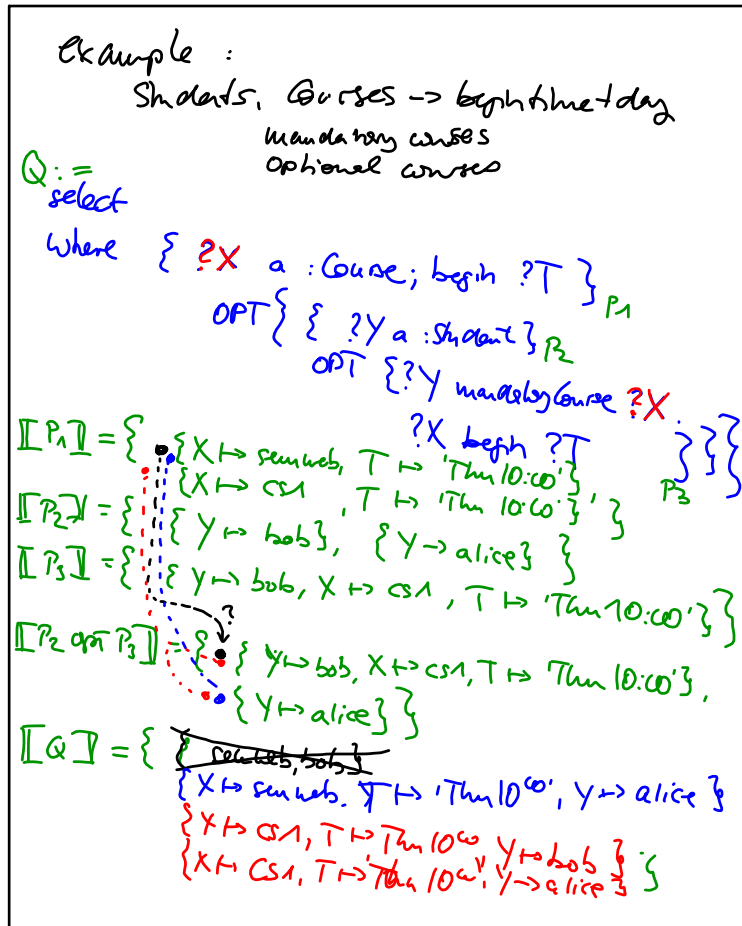 example :
Students, Courses -> begintime+day
mandatory courses
optional courses
Q :=
select
where { ?X a :Course; begin ?T } P1
OPT { { ?Y a :Student } P2
OPT { ?Y mandatoryCourse ?X.
?X begin ?T } } } P3
⟦P1⟧ = { {X ↦ semweb, T ↦ 'Thu 10:00'}
{X ↦ cs1 , T ↦ 'Thu 10:00'} }
⟦P2⟧ = { {Y ↦ bob}, {Y → alice} }
⟦P3⟧ = { {Y ↦ bob, X ↦ cs1, T ↦ 'Thu 10:00'} }
?
⟦P2 OPT P3⟧ = { {Y ↦ bob, X ↦ cs1, T ↦ 'Thu 10:00'},
{Y ↦ alice} }
⟦Q⟧ = { { semweb, bob }
{X ↦ semweb, T ↦ 'Thu 10:00', Y ↦ alice }
{X ↦ cs1, T ↦ Thu 10:00 Y ↦ bob }
{X ↦ CS1, T ↦ 'Thu 10:00', Y → alice } }